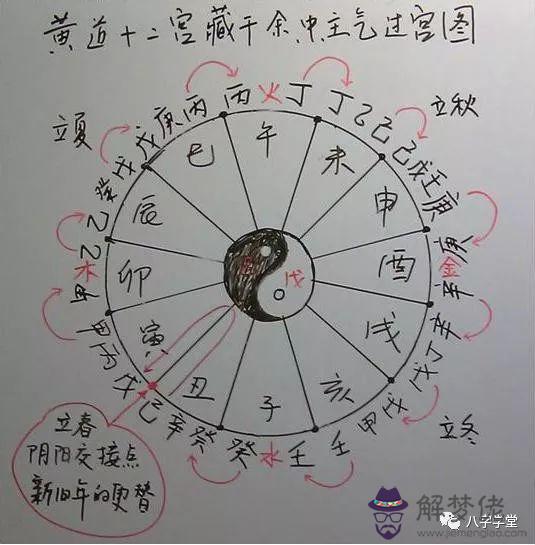 黄道十二宫藏干余中主气过宫图
立夏
立秋
戊庚丙
丙火丁
丁乙己
己戊壬庚
庚金辛
辛丁戊
戊甲壬
壬水癸
癸辛己
戊丙甲
甲木乙
乙癸戊
巳
午
未
申
酉
戌
亥
子
丑
寅
卯
辰
己
戊
立冬
立春
阴阳交接点
新旧年的更替
解梦佬
www.jiemenglao.com
八字学堂